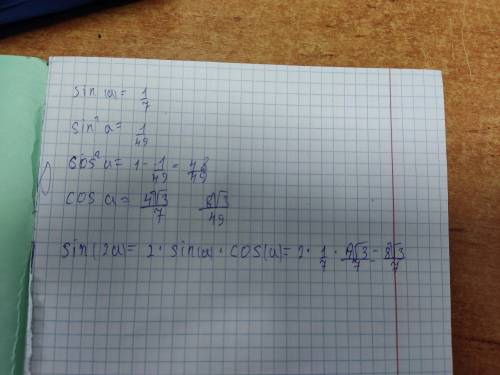 sin(a)= 1/7
sin²a= 1/49
cos²a= 1-1/49 = 48/49
cos a= 4√3/7 8√3/49
sin(2a)= 2· sin(a)· cos(a)= 2· 1/7 · 4√3/7 = 8√3/7